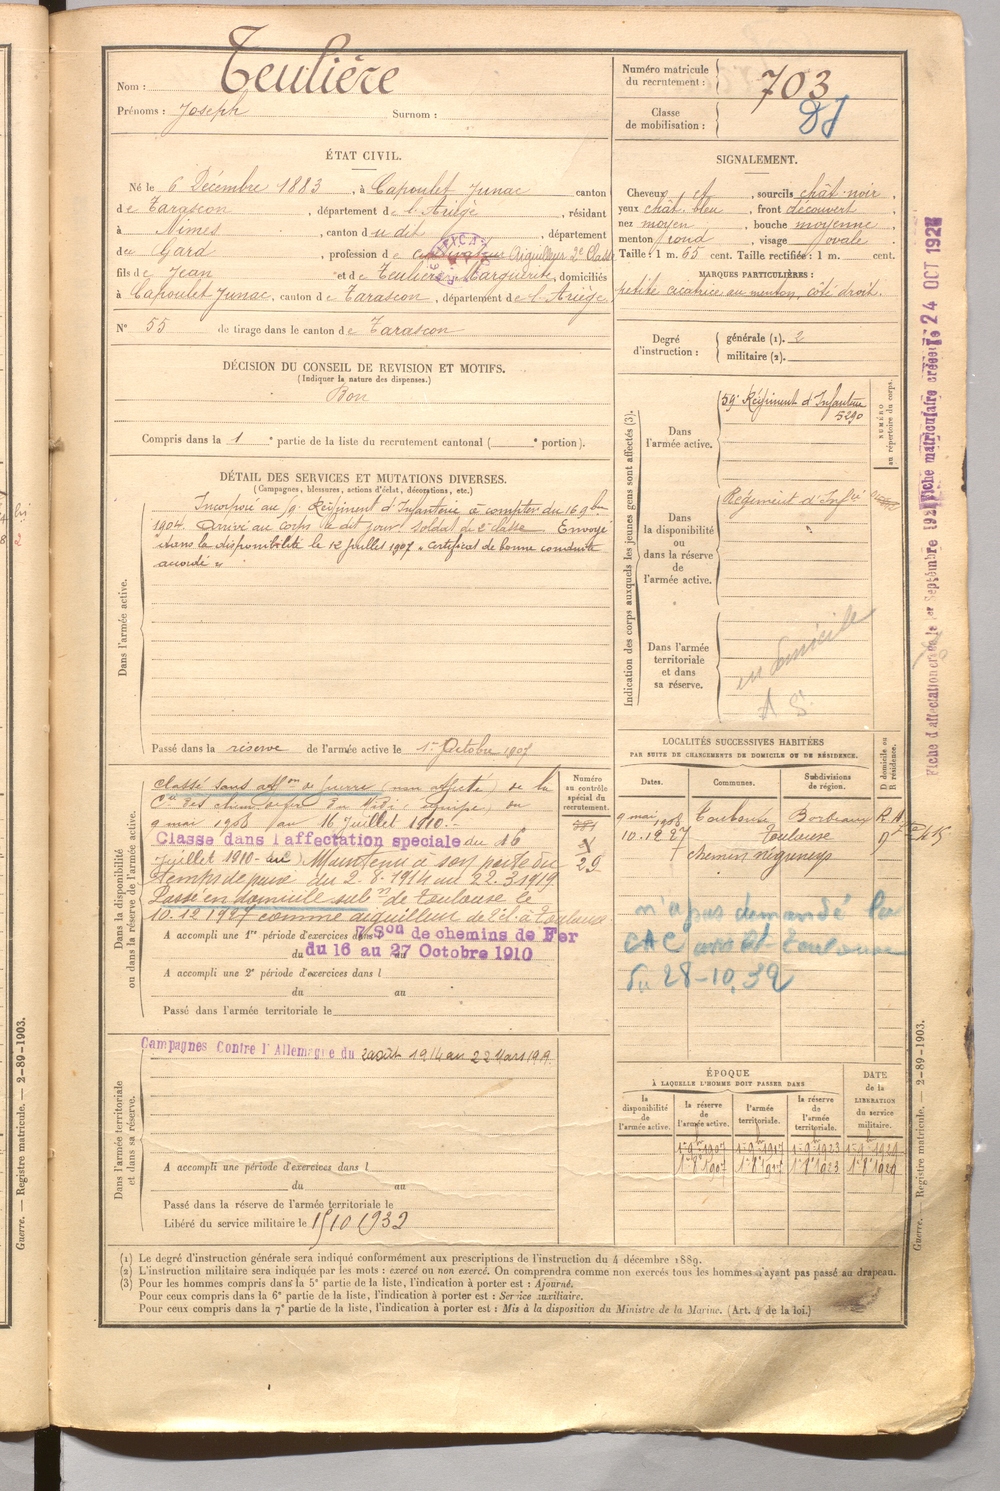 Nom : Teulière
Prénoms : Joseph Surnom :
Numéro matricule du recrutement : 703
Classe de mobilisation :
ÉTAT CIVIL.
Né le 6 Décembre 1883, à Capoulet Junac canton
de Tarascon, département de l'Ariège, résidant
à Nimes, canton du dit, département
du Gard, profession de Aiguilleur 2e Classe
fils de Jean et de Teulière Marguerite, domiciliés
à Capoulet Junac, canton de Tarascon, département de l'Ariège.
N° 55 de tirage dans le canton de Tarascon
SIGNALEMENT.
Cheveux et, sourcils chât. noir,
yeux chât. bleu, front découvert
nez moyen, bouche moyenne,
menton rond, visage ovale.
Taille : 1 m. 65 cent. Taille rectifiée : 1 m. cent.
MARQUES PARTICULIÈRES :
petite cicatrice au menton, côté droit.
Degré d'instruction : générale (1). 2
militaire (2).
DÉCISION DU CONSEIL DE REVISION ET MOTIFS.
(Indiquer la nature des dispenses.)
Bon
Compris dans la 1e partie de la liste du recrutement cantonal ( e portion).
DÉTAIL DES SERVICES ET MUTATIONS DIVERSES.
(Campagnes, blessures, actions d'éclat, décorations, etc.)
Dans l'armée active.
Incorporé au 59e Régiment d'Infanterie à compter du 16 9bre
1904. Arrivé au corps le dit jour soldat de 2e classe. Envoyé
dans la disponibilité le 12 Juillet 1907 « certificat de bonne conduite
accordé »
Passé dans la réserve de l'armée active le 1er Octobre 1907
Indication des corps auxquels les jeunes gens sont affectés (3).
NUMÉRO au répertoire du corps.
Dans l'armée active.
59e Régiment d'Infanterie
5290
Dans la disponibilité ou dans la réserve de l'armée active.
Régiment d'Infie
Dans l'armée territoriale et dans sa réserve.
en domicile
Fiche d'affectation créée le 1er Septembre 192 Fiche matriculaire créée le 24 OCT 192
Dans la disponibilité ou dans la réserve de l'armée active.
Numéro au contrôle spécial du recrutement.
Classé sans affon de guerre (non affecté) de la
Cie des chem. de fer du Midi, (équipe) du
9 mai 1908 au 16 Juillet 1910.-
Classe dans l'affectation speciale du 16
Juillet 1910 - Maintenu à son poste du
temps de paix du 2.8.1914 au 22.3.1919
Passé en domicile subon de Toulouse le
10.12.1927 comme aiguilleur de l'Et à Toulouse
A accompli une 1re période d'exercices dans 7 Son de chemins de Fer
du 16 au 27 Octobre 1910
A accompli une 2e période d'exercices dans l
du au
Passé dans l'armée territoriale le
29
LOCALITÉS SUCCESSIVES HABITÉES
PAR SUITE DE CHANGEMENTS DE DOMICILE OU DE RÉSIDENCE.
Dates. Communes. Subdivisions de région. D domicile ou R résidence.
9 mai 1908 Toulouse Bordeaux R
10.12 27 Toulouse D
7 chemin Négreneys
n'a pas demandé la
CAC avis Bt Toulouse
du 28-10.32
Dans l'armée territoriale et dans sa réserve.
Campagnes Contre l'Allemagne du 2 août 1914 au 22 Mars 1919.
A accompli une période d'exercices dans l
du au
Passé dans la réserve de l'armée territoriale le
Libéré du service militaire le 15 10 1932
ÉPOQUE
À LAQUELLE L'HOMME DOIT PASSER DANS
la disponibilité de l'armée active. la réserve de l'armée active. l'armée territoriale. la réserve de l'armée territoriale. DATE de la LIBÉRATION du service militaire.
1er 8bre 1907 1er 8bre 1917 1er 8bre 1923 1er 8bre 1929
(1) Le degré d'instruction générale sera indiqué conformément aux prescriptions de l'instruction du 4 décembre 1889.
(2) L'instruction militaire sera indiquée par les mots : exercé ou non exercé. On comprendra comme non exercés tous les hommes n'ayant pas passé au drapeau.
(3) Pour les hommes compris dans la 5e partie de la liste, l'indication à porter est : Ajourné.
Pour ceux compris dans la 6e partie de la liste, l'indication à porter est : Service auxiliaire.
Pour ceux compris dans la 7e partie de la liste, l'indication à porter est : Mis à la disposition du Ministre de la Marine. (Art. 4 de la loi.)
Guerre. — Registre matricule. — 2-89-1903.
Guerre. — Registre matricule. — 2-89-1903.